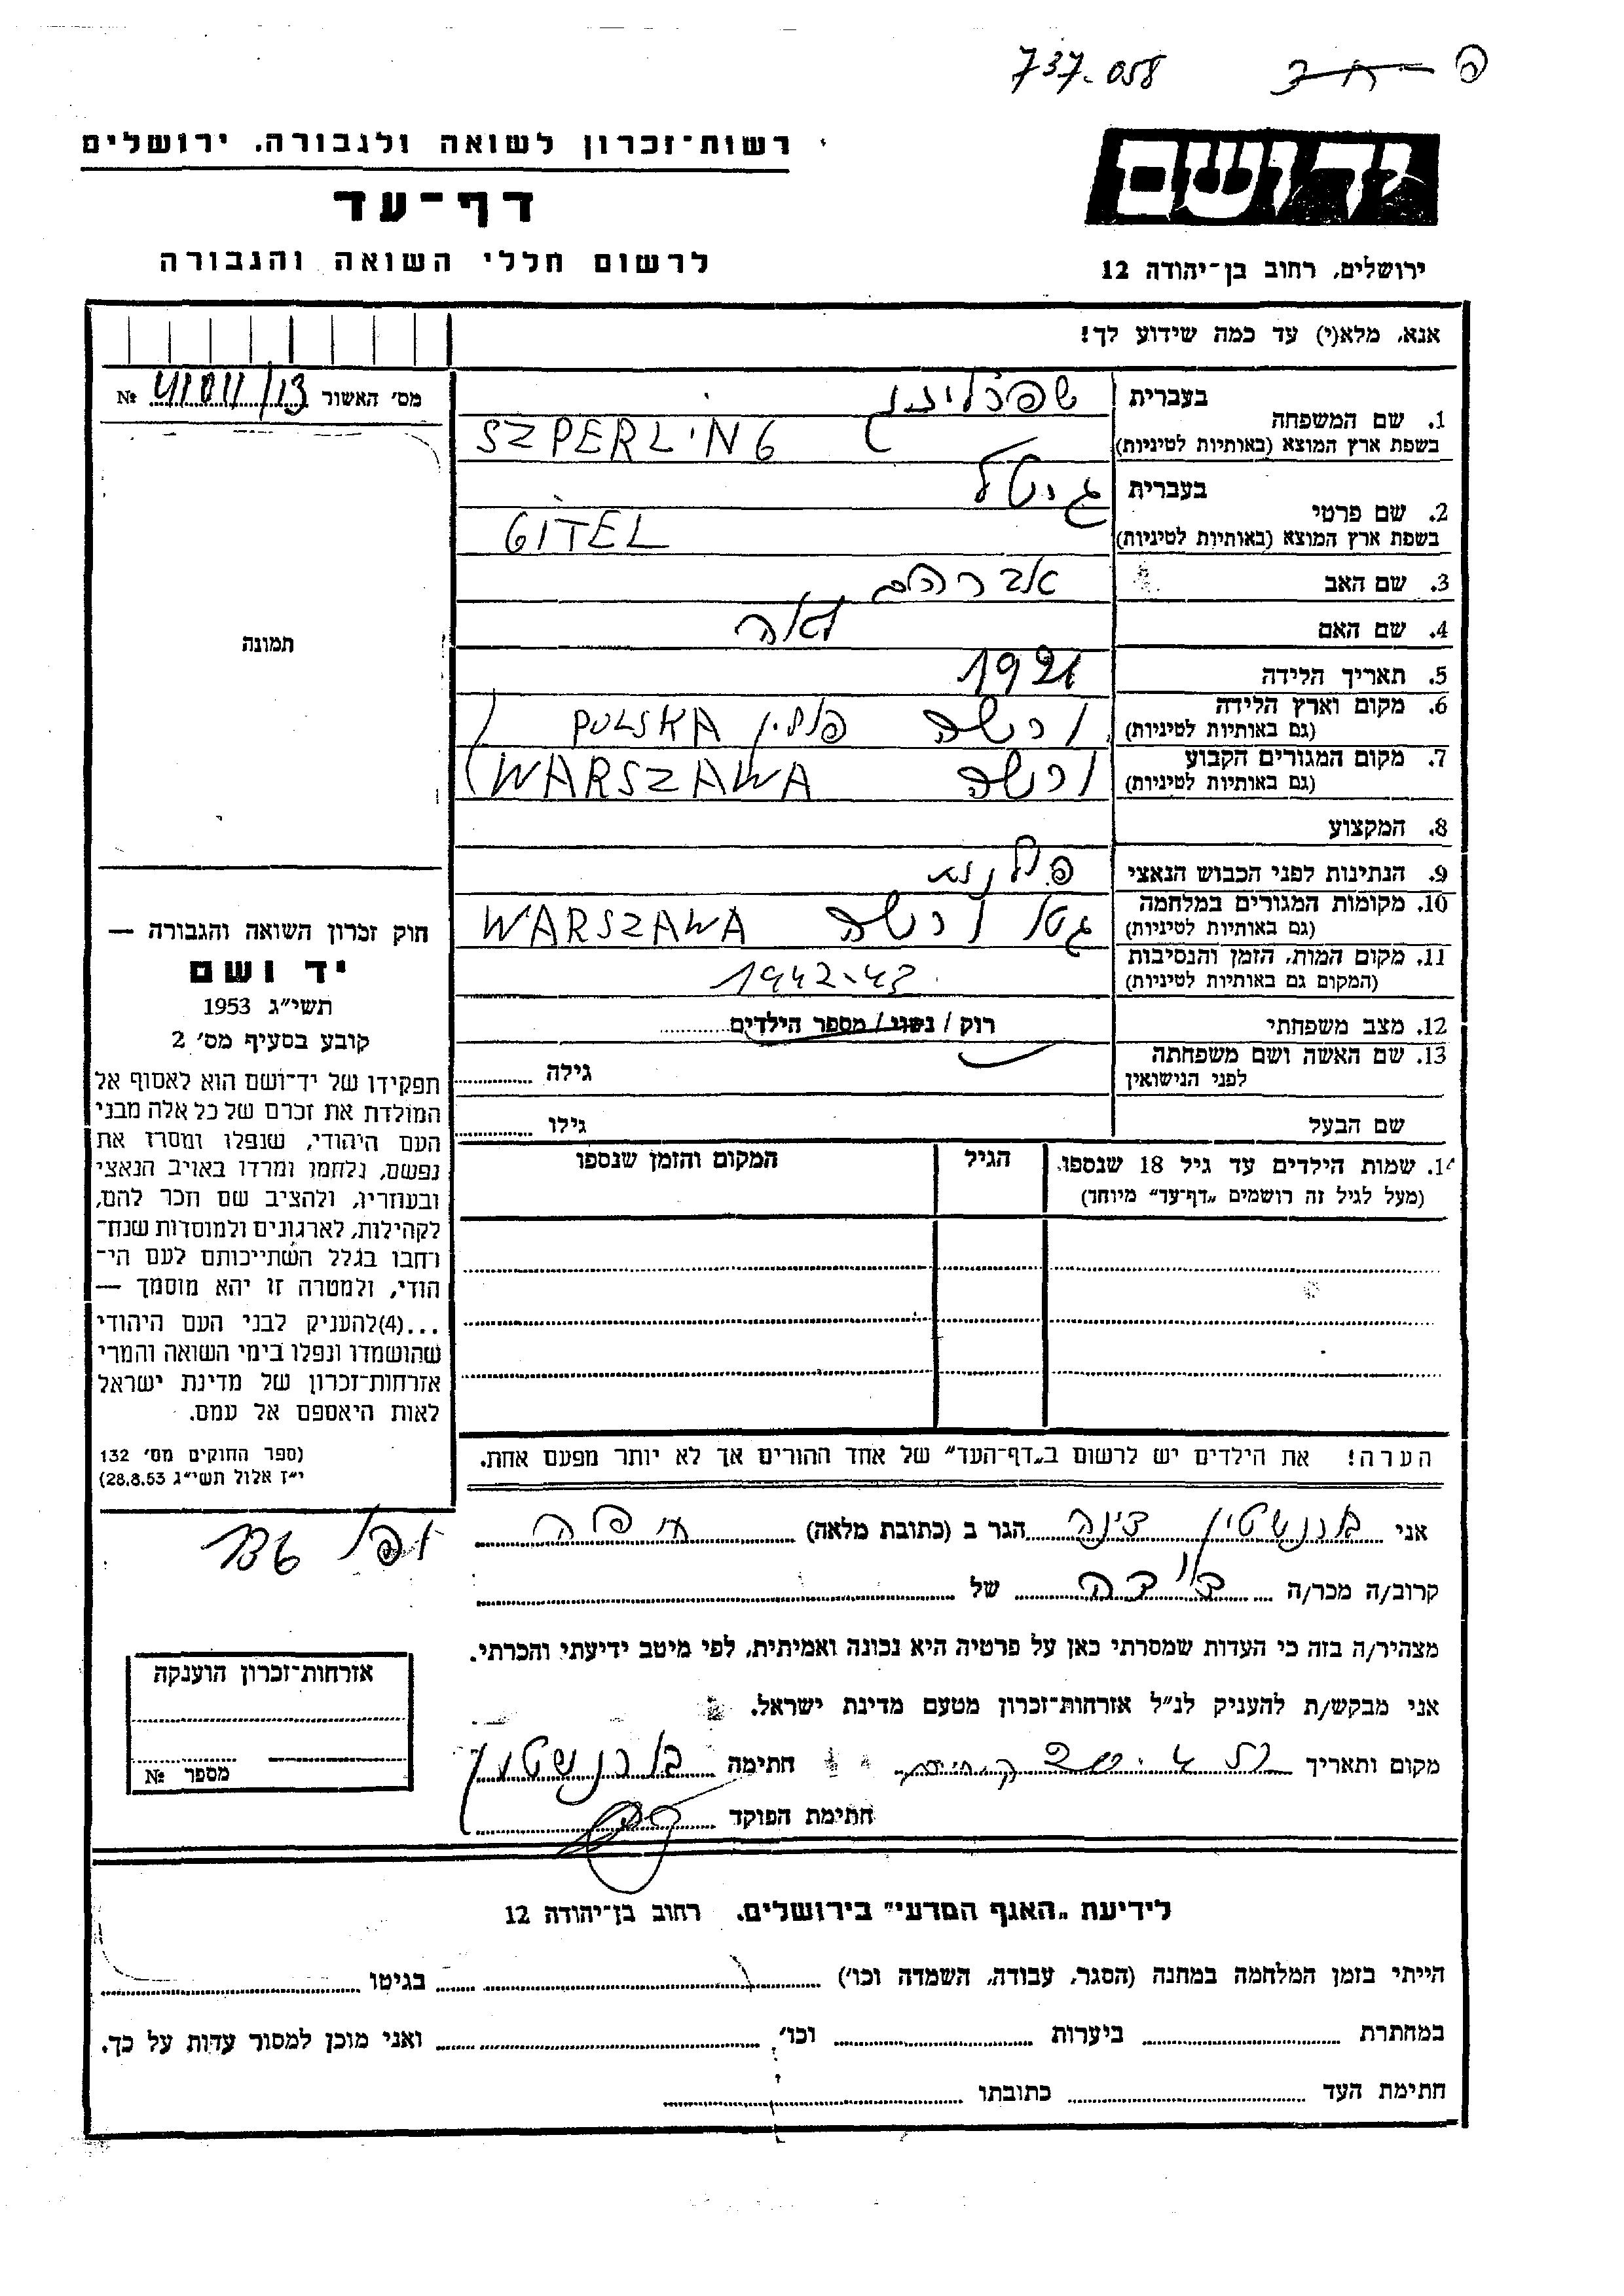 737-058
רשות־זכרון לשואה ולגבורה. ירושלים
יד ושם
דף־עד
לרשום חללי השואה והגבורה
ירושלים, רחוב בן־יהודה 12
אנא, מלא(י) עד כמה שידוע לך!
מס׳ האשור №
1. שם המשפחה
בעברית שפרלינג
בשפת ארץ המוצא (באותיות לטיניות) SZPERLING
2. שם פרטי
בעברית גיטל
בשפת ארץ המוצא (באותיות לטיניות) GITEL
3. שם האב אברהם
4. שם האם לאה
5. תאריך הלידה 1921
6. מקום וארץ הלידה
(גם באותיות לטיניות) ורשה פולין POLSKA
7. מקום המגורים הקבוע
(גם באותיות לטיניות) ורשה WARSZAWA
8. המקצוע
9. הנתינות לפני הכבוש הנאצי
10. מקומות המגורים במלחמה
(גם באותיות לטיניות) גטו ורשה WARSZAWA
11. מקום המות, הזמן והנסיבות
(המקום גם באותיות לטיניות) 1942-43
12. מצב משפחתי רוק / נשוי / מספר הילדים
13. שם האשה ושם משפחתה
לפני הנישואין גילה
שם הבעל גילו
14. שמות הילדים עד גיל 18 שנספו. הגיל המקום והזמן שנספו
(מעל לגיל זה רושמים „דף־עד” מיוחד)
הערה! את הילדים יש לרשום ב„דף־העד” של אחד ההורים אך לא יותר מפעם אחת.
תמונה
חוק זכרון השואה והגבורה —
יד ושם
תשי״ג 1953
קובע בסעיף מס׳ 2
תפקידו של יד־ושם הוא לאסוף אל
המולדת את זכרם של כל אלה מבני
העם היהודי, שנפלו ומסרו את
נפשם, נלחמו ומרדו באויב הנאצי
ובעוזריו, ולהציב שם וזכר להם,
לקהילות, לארגונים ולמוסדות שנח־
רחבו בגלל השתייכותם לעם הי־
הודי, ולמטרה זו יהא מוסמך —
...(4)להעניק לבני העם היהודי
שהושמדו ונפלו בימי השואה והמרי
אזרחות־זכרון של מדינת ישראל
לאות היאספם אל עמם.
(ספר החוקים מס׳ 132
י״ז אלול תשי״ג 28.8.53)
אני ברנשטין הגר ב (כתובת מלאה) חיפה
קרוב/ה מכר/ה דודה של
מצהיר/ה בזה כי העדות שמסרתי כאן על פרטיה היא נכונה ואמיתית, לפי מיטב ידיעתי והכרתי.
אני מבקש/ת להעניק לנ״ל אזרחות־זכרון מטעם מדינת ישראל.
מקום ותאריך חתימה ברנשטין
חתימת הפוקד
אזרחות־זכרון הוענקה
מספר №
לידיעת „האגף המדעי” בירושלים. רחוב בן־יהודה 12
הייתי בזמן המלחמה במחנה (הסגר, עבודה, השמדה וכו׳) בגיטו
במחתרת ביערות וכו׳ ואני מוכן למסור עדות על כך.
חתימת העד כתובתו